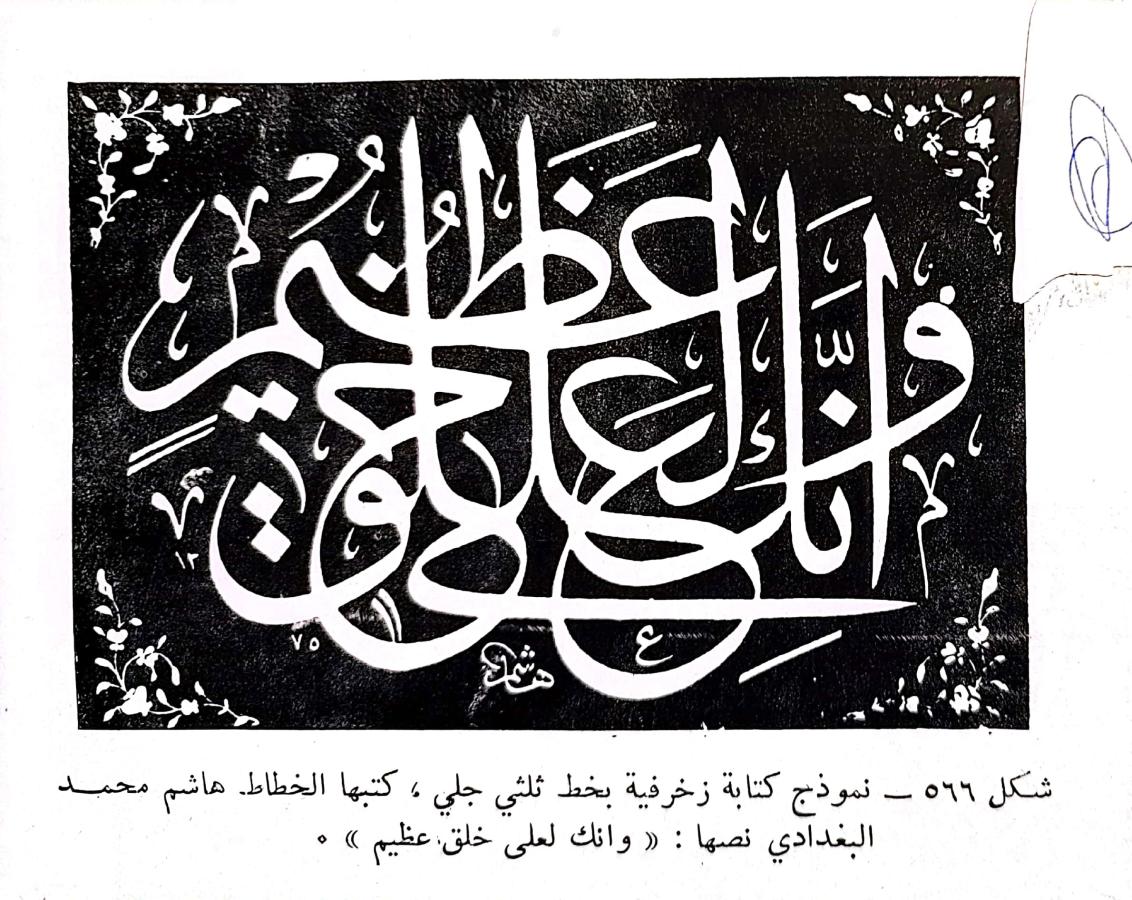 وَإِنَّكَ لَعَلَىٰ خُلُقٍ عَظِيمٍ
١٣
٧٥
هاشم
شكل ٥٦٦ — نموذج كتابة زخرفية بخط ثلثي جلي ، كتبها الخطاط هاشم محمد
البغدادي نصها : « وانك لعلى خلق عظيم » ٠